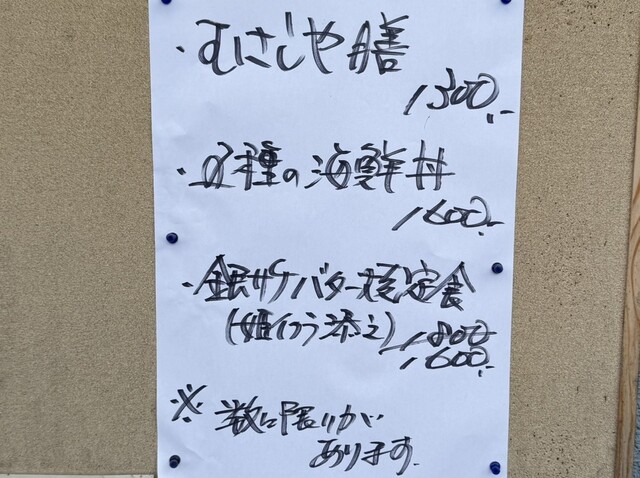 ・むさしや膳
1300.-
・8種の海鮮丼
1600.-
・銀ザケバター焼定食
(姫イクラ添え) 1800
1600.-
※ 数に限りが
あります.